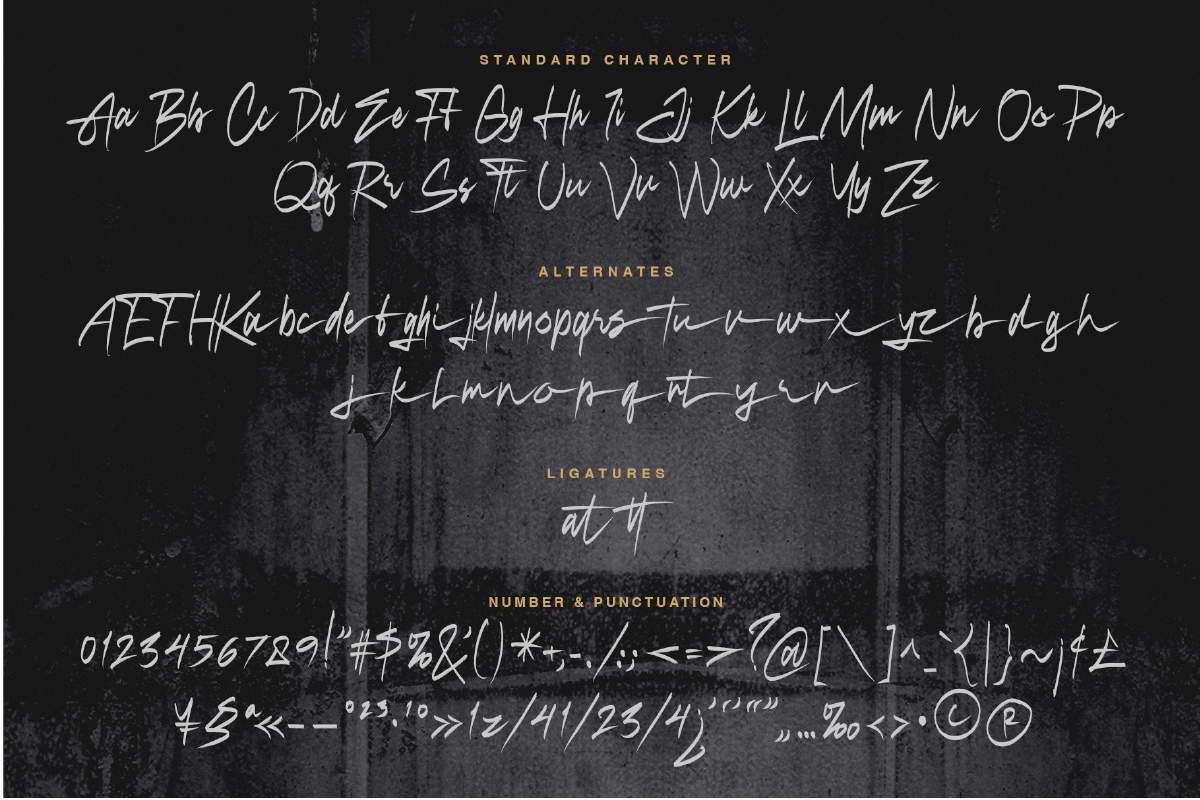 STANDARD CHARACTER
Aa Bb Cc Dd Ee Ff Gg Hh Ii Jj Kk Ll Mm Nn Oo Pp
Qq Rr Ss Tt Uu Vv Ww Xx Yy Zz
ALTERNATES
AEFHKabcdefghijklmnopqrstuvwxyzbdgh
jklmnopqrtyrr
LIGATURES
at tt
NUMBER & PUNCTUATION
0123456789!"#$%&'()*+,-./:;<=>?@[\]^_`{|}~¡¢£
¥§ª«–—°²³·¹º»1⁄4 1⁄2 3⁄4¿‘’“”„…‰‹›•©®